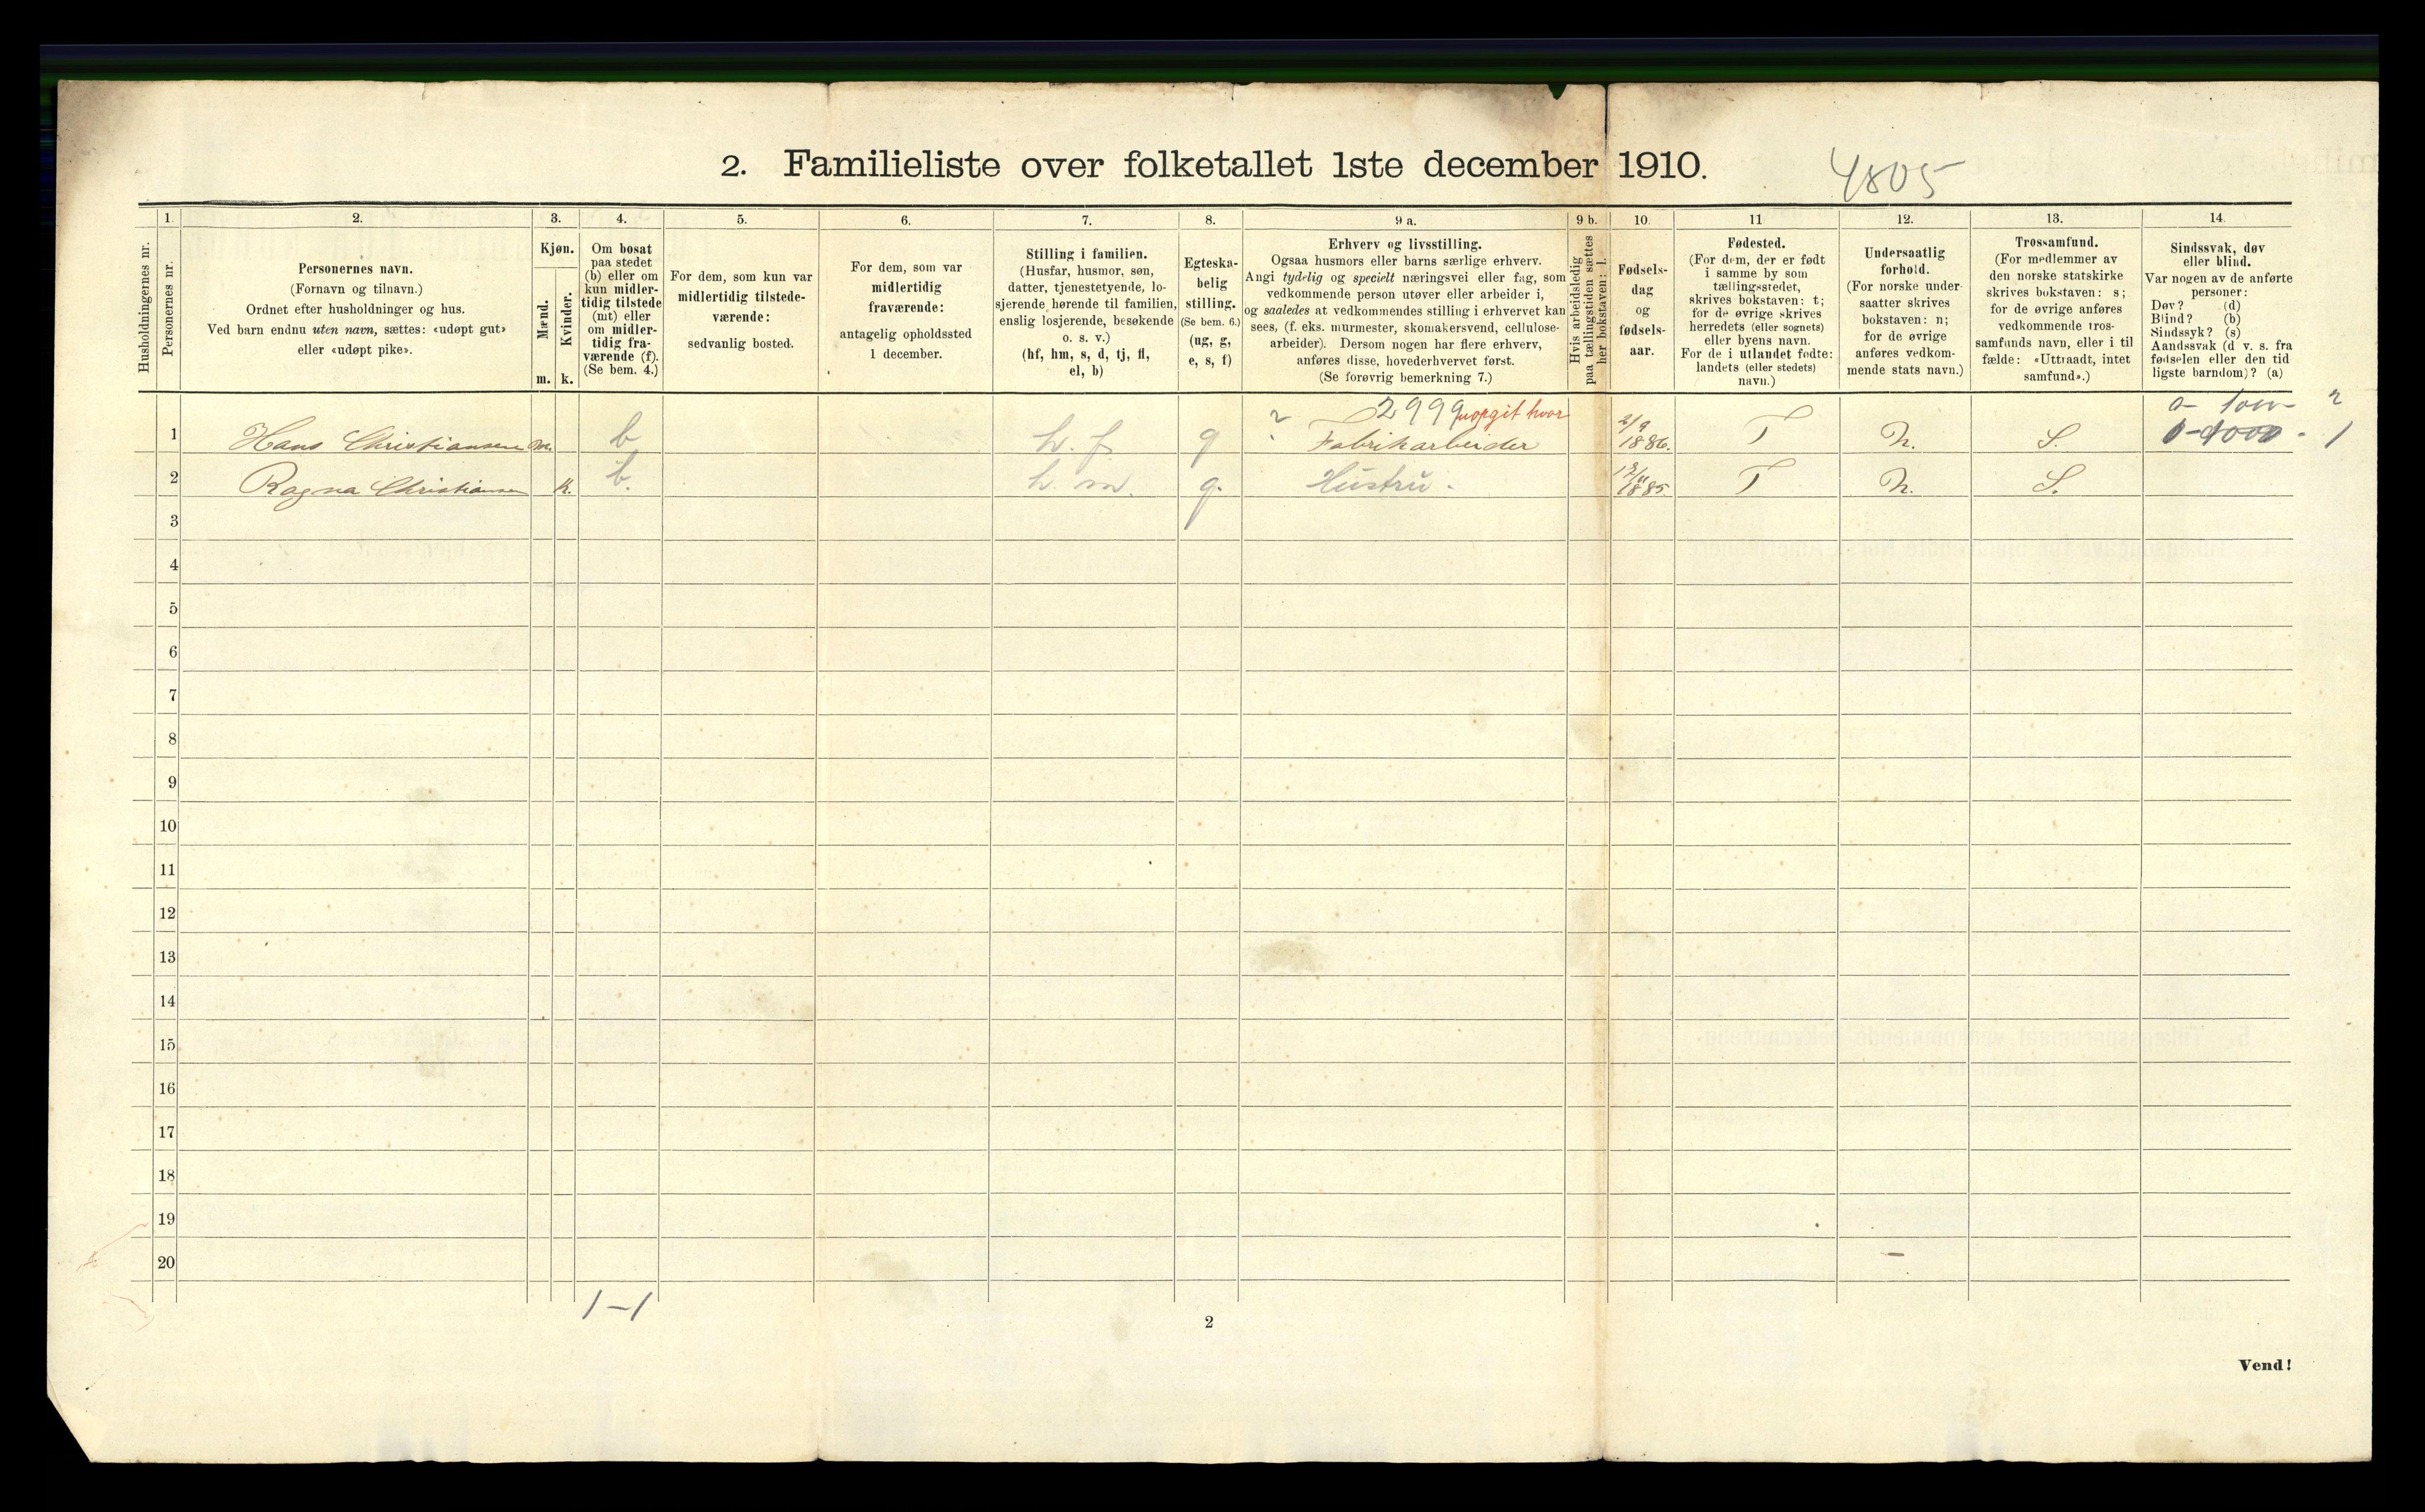 2. Familieliste over folketallet 1ste december 1910.
4805
Husholdningernes nr.
1.
Personernes nr.
2.
Personernes navn.
(Fornavn og tilnavn.)
Ordnet efter husholdninger og hus.
Ved barn endnu uten navn, sættes: «udøpt gut»
eller «udøpt pike».
3.
Kjøn.
Mænd.
m.
Kvinder.
k.
4.
Om bosat
paa stedet
(b) eller om
kun midler-
tidig tilstede
(mt) eller
om midler-
tidig fra-
værende (f).
(Se bem. 4.)
5.
For dem, som kun var
midlertidig tilstede-
værende:
sedvanlig bosted.
6.
For dem, som var
midlertidig
fraværende:
antagelig opholdssted
1 december.
7.
Stilling i familien.
(Husfar, husmor, søn,
datter, tjenestetyende, lo-
sjerende hørende til familien,
enslig losjerende, besøkende
o. s. v.)
(hf, hm, s, d, tj, fl,
el, b)
8.
Egteska-
belig
stilling.
(Se bem. 6.)
(ug, g,
e, s, f)
9 a.
Erhverv og livsstilling.
Ogsaa husmors eller barns særlige erhverv.
Angi tydelig og specielt næringsvei eller fag, som
vedkommende person utøver eller arbeider i,
og saaledes at vedkommendes stilling i erhvervet kan
sees, (f. eks. murmester, skomakersvend, cellulose-
arbeider). Dersom nogen har flere erhverv,
anføres disse, hovederhvervet først.
(Se forøvrig bemerkning 7.)
9 b.
Hvis arbeidsledig
paa tællingstiden sættes
her bokstaven: l.
10.
Fødsels-
dag
og
fødsels-
aar.
11
Fødested.
(For dem, der er født
i samme by som
tællingsstedet,
skrives bokstaven: t;
for de øvrige skrives
herredets (eller sognets)
eller byens navn.
For de i utlandet fødte:
landets (eller stedets)
navn.)
12.
Undersaatlig
forhold.
(For norske under-
saatter skrives
bokstaven: n;
for de øvrige
anføres vedkom-
mende stats navn.)
13.
Trossamfund.
(For medlemmer av
den norske statskirke
skrives bokstaven: s;
for de øvrige anføres
vedkommende tros-
samfunds navn, eller i til
fælde: «Uttraadt, intet
samfund».)
14.
Sindssvak, døv
eller blind.
Var nogen av de anførte
personer:
Døv? (d)
Blind? (b)
Sindssyk? (s)
Aandssvak (d v. s. fra
fødselen eller den tid
ligste barndom)? (a)
? 2999 uopgit hvor 2
1 Hans Christiansen m. b h. f g Fabrikarbeider 2/9 1886. T N. S. 1
2 Ragna Christiansen k. b. h. m. g. Hustru. 1885 T N. S.
3
4
5
6
7
8
9
10
11
12
13
14
15
16
17
18
19
20
1-1
2
Vend!